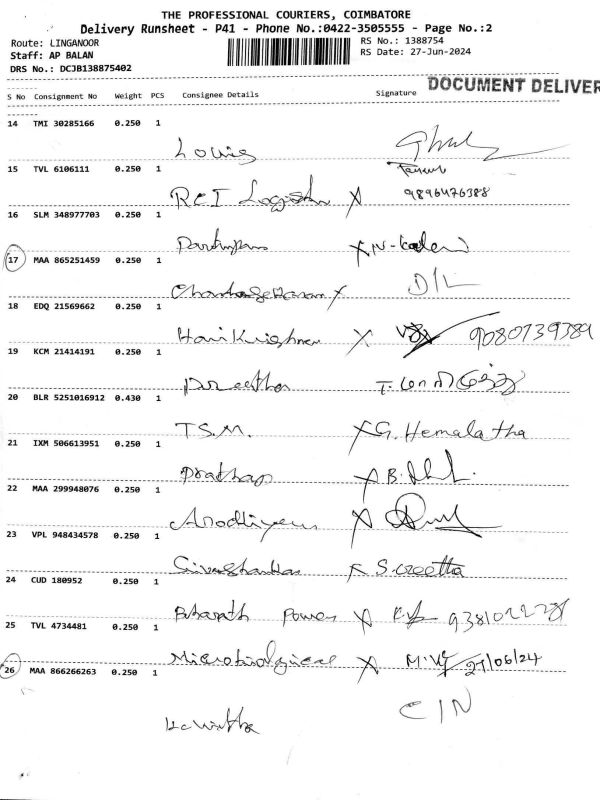 THE PROFESSIONAL COURIERS, COIMBATORE
Delivery Runsheet - P41 - Phone No.:0422-3505555 - Page No.:2
Route: LINGANOOR
Staff: AP BALAN
DRS No.: DCJB138875402
RS No.: 1388754
RS Date: 27-Jun-2024
DOCUMENT DELIVER
S No Consignment No Weight PCS Consignee Details Signature
14 TMI 30285166 0.250 1
Louis
15 TVL 6106111 0.250 1
9896476388
RCI X
16 SLM 348977703 0.250 1
X N-
17 MAA 865251459 0.250 1
Chandrasekaran X D/L
18 EDQ 21569662 0.250 1
Hari Krishnan X 9080739389
19 KCM 21414191 0.250 1
Preetha T.
20 BLR 5251016912 0.430 1
T.S.M. X G. Hemalatha
21 IXM 506613951 0.250 1
Prathap X B.
22 MAA 299948076 0.250 1
X
23 VPL 948434578 0.250 1
Sivashankar X S. Geetha
24 CUD 180952 0.250 1
Bharath Power X
25 TVL 4734481 0.250 1
Microbiological X 27/06/24
26 MAA 866266263 0.250 1
Kavitha C/N